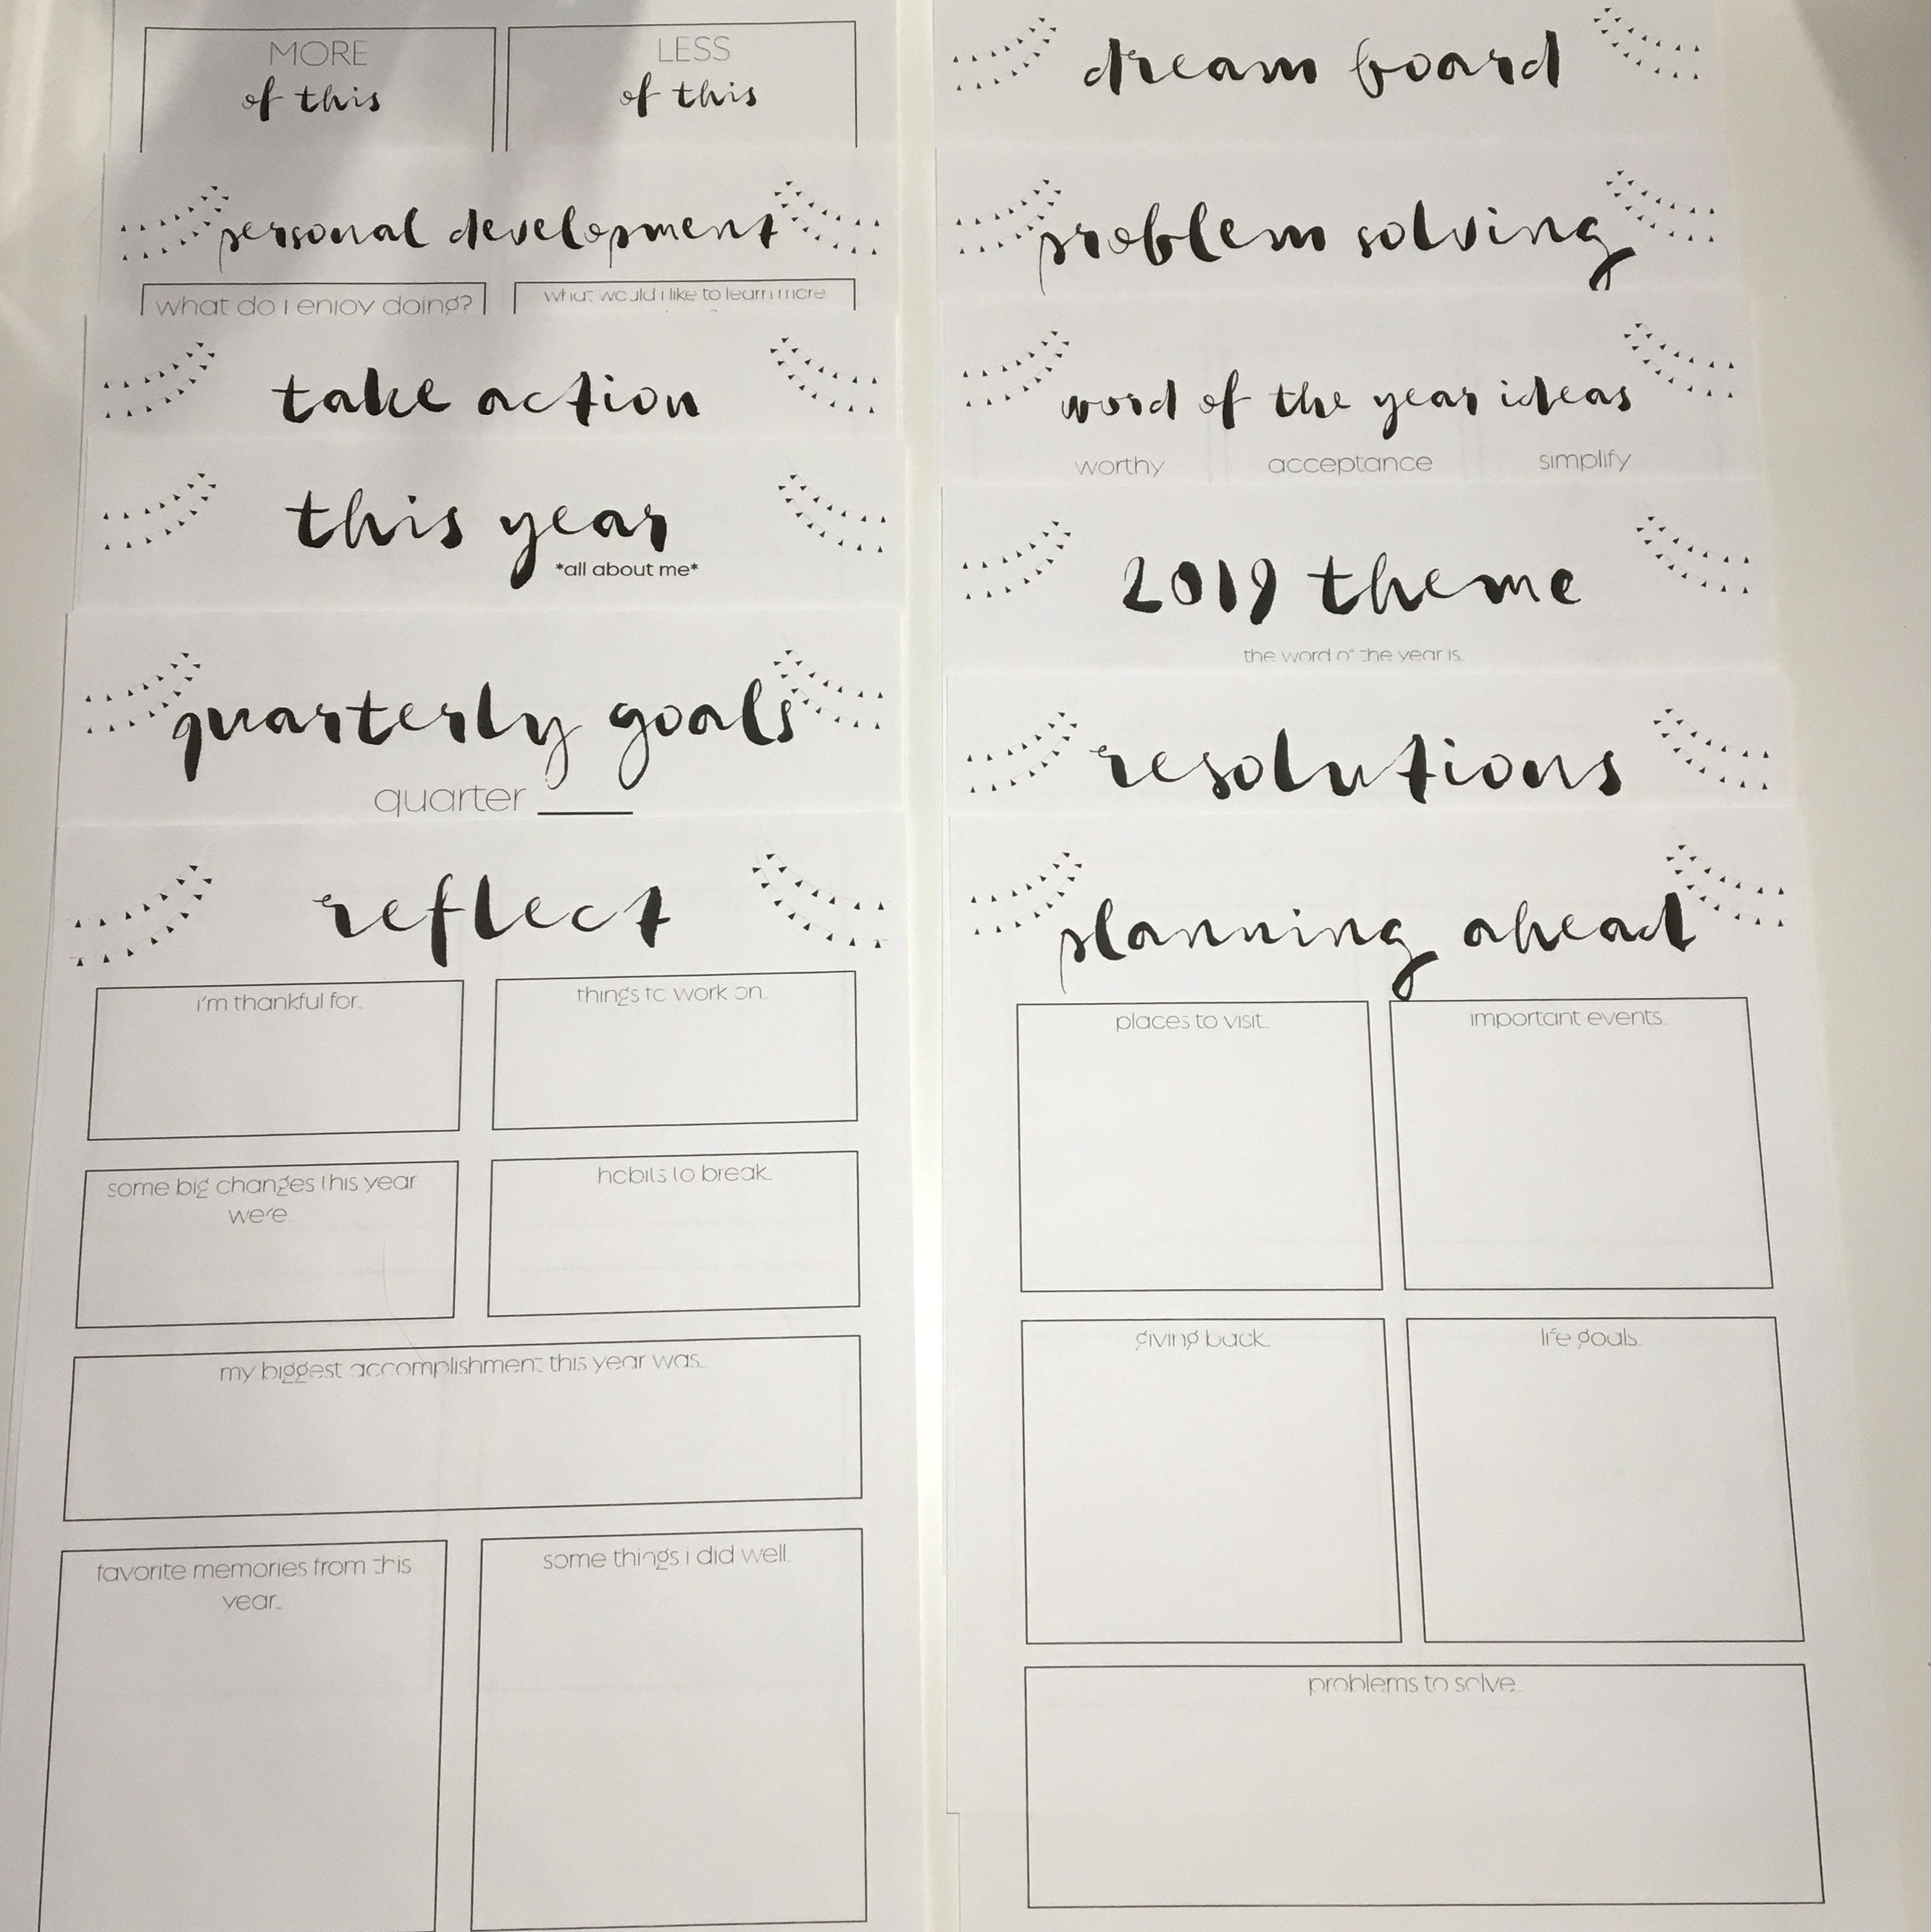 MORE
of this
LESS
of this
personal development
what do i enjoy doing?
what would i like to learn more
take action
this year
*all about me*
quarterly goals
quarter ____
reflect
i'm thankful for...
things to work on...
some big changes this year
were
habits to break...
my biggest accomplishment this year was...
favorite memories from this
year...
some things i did well...
dream board
problem solving
word of the year ideas
worthy
acceptance
simplify
2019 theme
the word of the year is...
resolutions
planning ahead
places to visit...
important events...
giving back...
life goals...
problems to solve...